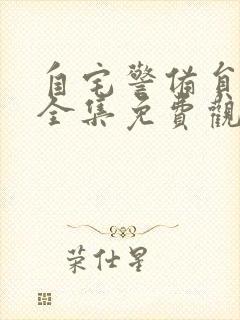 自宅警备員
全集免費觀
荣仕星